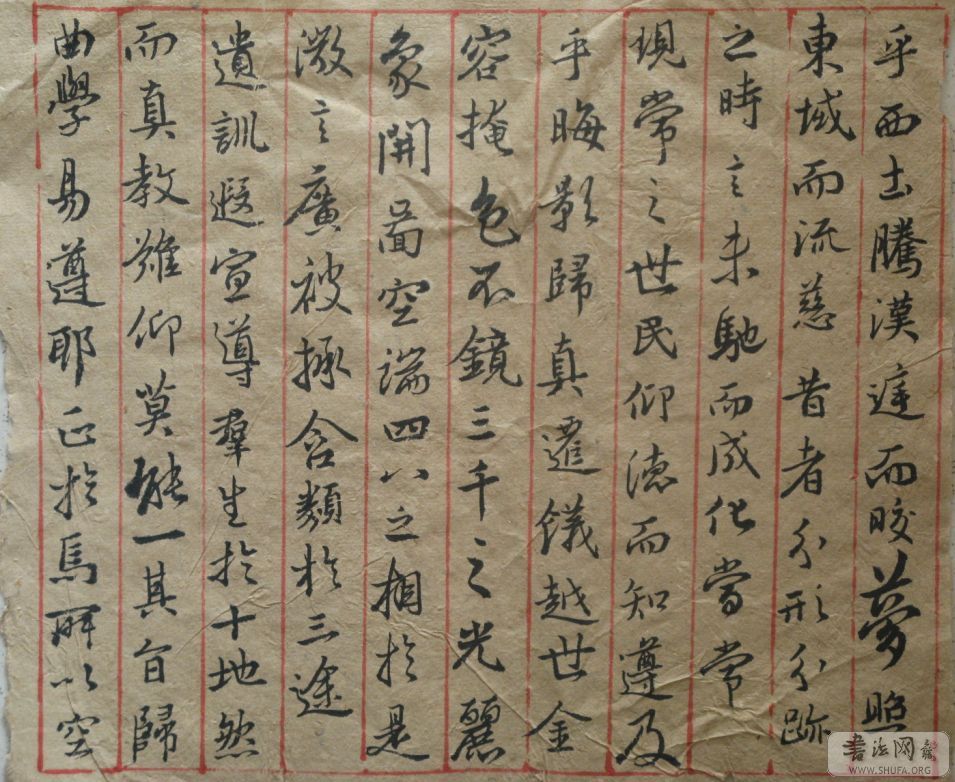 乎西土騰漢庭而皎夢照
東域而流慈昔者分形分跡
之時言未馳而成化當常
現常之世民仰德而知遵及
乎晦影歸真遷儀越世金
容掩色不鏡三千之光麗
象開圖空端四八之相於是
微言廣被拯含類於三途
遺訓遐宣導羣生於十地然
而真教難仰莫能一其旨歸
曲學易遵耶正於焉所以空
書法网
WWW.SHUFA.ORG